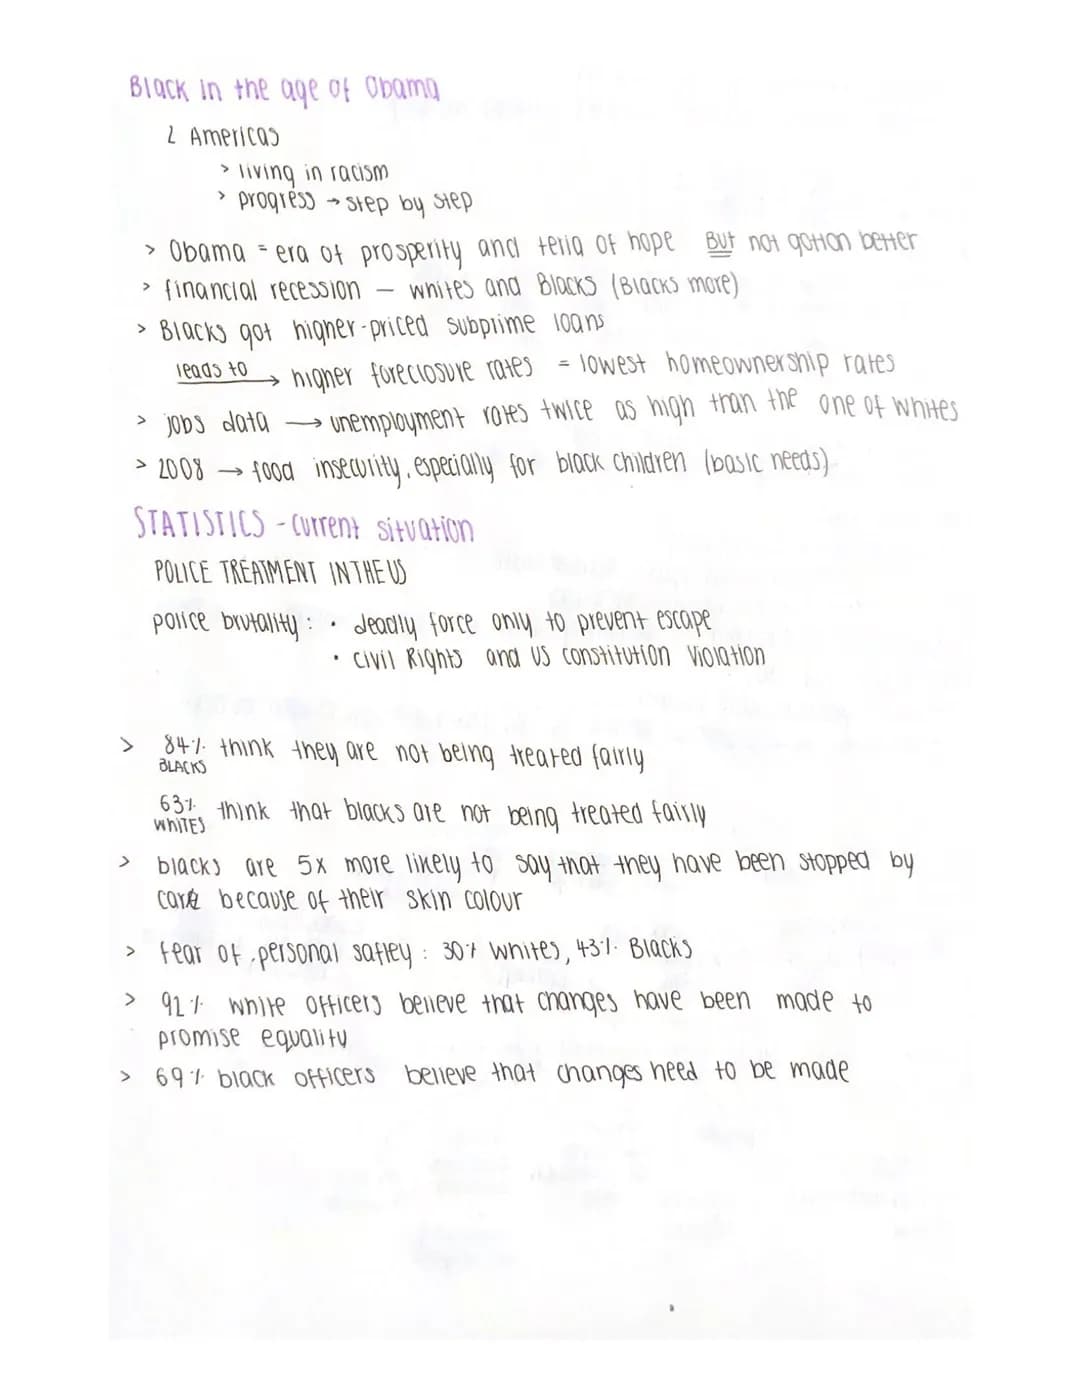 Black in the age of Obama
2 Americas
> living in racism
> progress → step by step
> Obama = era of prosperity and teria of hope But not gotton better
> financial recession — whites and Blacks (Blacks more)
> Blacks got higher-priced subprime loans
leads to → higher foreclosure rates = lowest homeownership rates
> jobs data → unemployment rates twice as high tran the one of whites
> 2008 → food insecurity, especially for black children (basic needs)
STATISTICS - Current situation
POLICE TREATMENT IN THE US
police brutality : • deadly force only to prevent escape
• Civil Rights and US constitution Violation
> 84% think they are not being treated fairly
BLACKS
63% think that blacks are not being treated fairly
WHITES
> blacks are 5x more likely to say that they have been stopped by
because of their skin colour
> fear of personal saftey : 30% Whites, 43% Blacks
> 92% white officers believe that changes have been made to
promise equality
> 69% black officers believe that changes need to be made